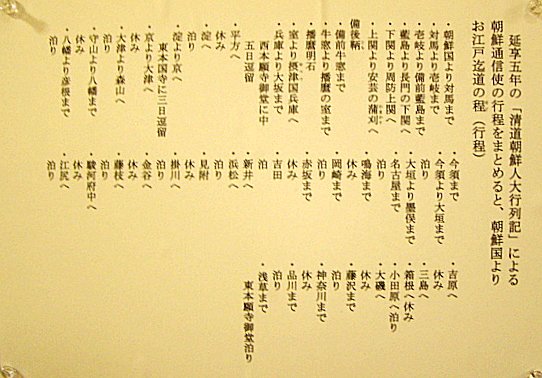 延享五年の「清道朝鮮人大行列記」による
朝鮮通信使の行程をまとめると、朝鮮国より
お江戸迄道の程(行程)
・朝鮮国より対馬まで
・対馬より壱岐まで
・壱岐より備前藍島まで
・藍島より長門の下関へ
・下関より周防上関へ
・上関より安芸の蒲刈へ
備後鞆
・備前牛窓まで
・牛窓より播磨の室まで
・播磨明石
・室より摂津国兵庫へ
・兵庫より大坂まで
西本願寺御堂に中
五日逗留
・平方へ
休み
・淀へ
泊り
・淀より京へ
東本国寺に三日逗留
・京より大津へ
休み
・大津より森山へ
泊り
・守山より八幡まで
休み
・八幡より彦根まで
泊り
・今須まで
・今須より大垣まで
泊り
・大垣より墨俣まで
・名古屋まで
泊り
・鳴海まで
休み
・岡崎まで
泊り
・赤坂まで
休み
・吉田
泊
・新井へ
・浜松へ
泊り
・見附
休み
・掛川へ
泊り
・金谷へ
休み
・藤枝へ
泊り
・駿河府中へ
休み
・江尻へ
泊り
・吉原へ
休み
・三島へ
・箱根へ休み
・小田原へ泊り
・大磯へ
休み
・藤沢まで
泊り
・神奈川まで
休み
・品川まで
泊り
・浅草まで
東本願寺御堂泊り